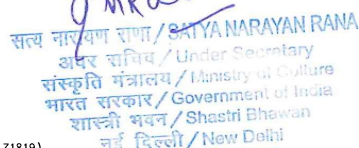 सत्य नारायण राणा/SATYA NARAYAN RANA
अवर सचिव/Under Secretary
संस्कृति मंत्रालय/Ministry of Culture
भारत सरकार/Government of India
शास्त्री भवन/Shastri Bhawan
नई दिल्ली/New Delhi
Z1819)